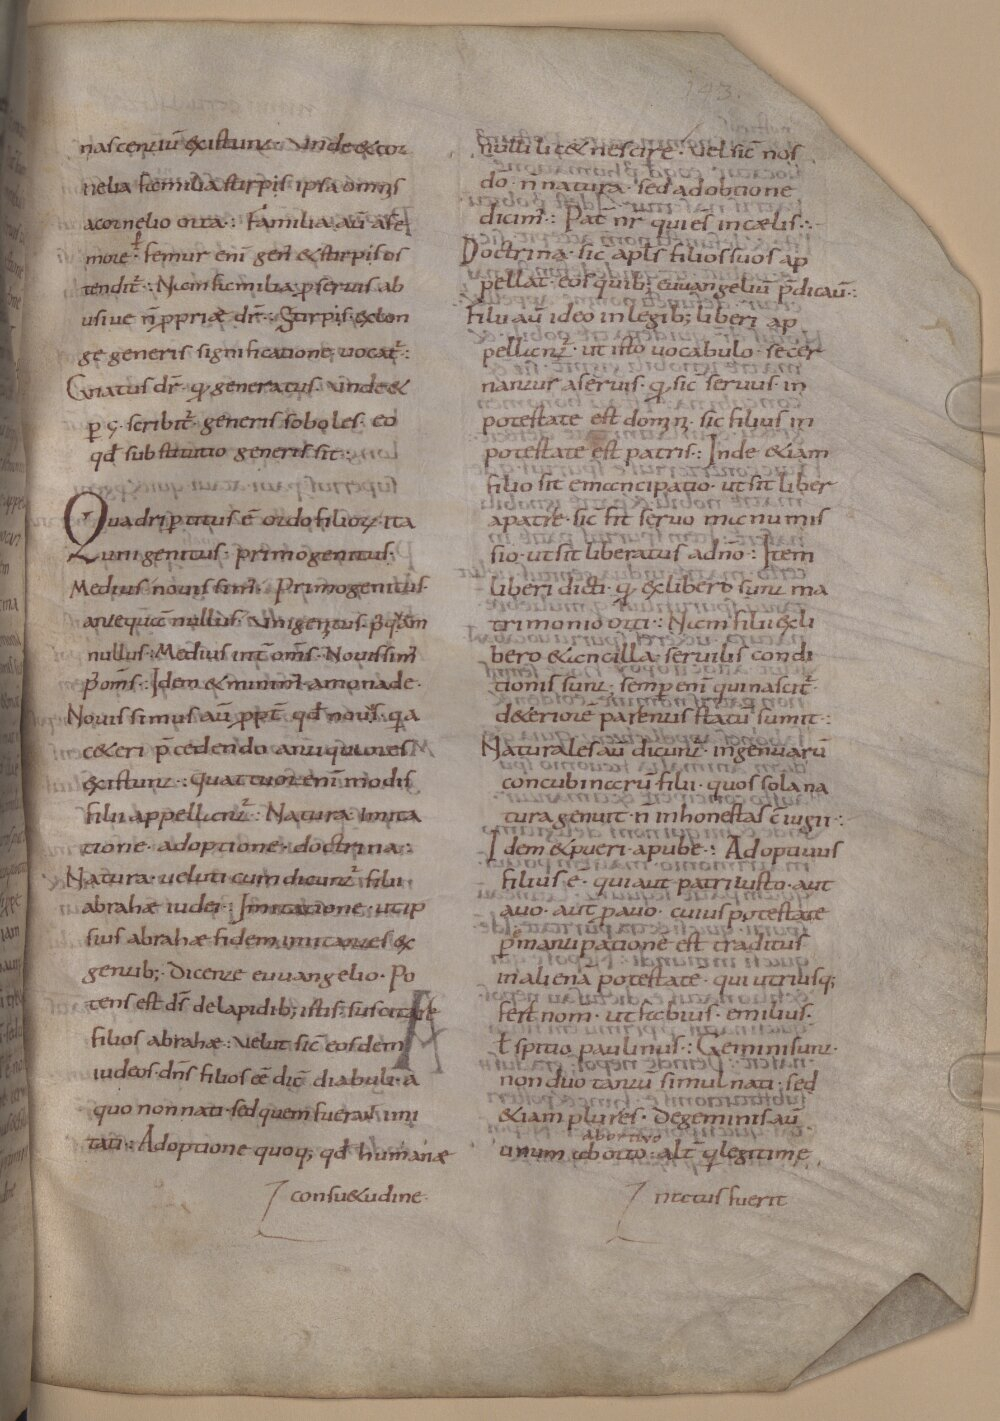 143.
nascentiū existunt. Unde & cor
nelia familia stirpis ipsa omnis
a cornelio orta: Familia aū a fe
more. femur enī gen & stirpis os
tenditr: Nam familia p servis ab
usive n ppriæ dr: Stirpis ex lon
ge generis significatione vocatr:
Gnatus dr. q generatus. unde &
p g. scribitr. generis soboles. eo
qd substitutio generis sit:
Quadripertitus ē ordo filioꝝ ita
unigenitus. primogenitus.
Medius novissim. Primogenitus
ante quē nullus. Unigenitus p quem
nullus. Medius int oms. Novissim
p oms. Idem & minim a monade.
Novissimus aū ppt qd novus. q a
ceteri p̄cedendo antiquiores
existunt: Quattuor enī modis
filii appellantr: Natura imita
tione. adoptione. doctrina:
Natura. veluti cum dicuntr filii
abrahæ iudei: Imitatione. ut ip
sius abrahæ fidem imitantes ex
gentib; dicente euuangelio. Po
tens est ds de lapidib; istis suscitare
filios abrahæ: velut sic eosdem
iudeos dns filios eē dic diabuli. a
quo non nati. sed quem fuerat imi
tati: Adoptione quoq; qd humanæ
consuetudine.
nulli licet nescire. vel sic nos
do. n natura. sed adobtione
dicim: Pat nr qui es in cælis:
Doctrina. sic apls filios suos ap
pellat. eos quib; euuangeliū p̄dicaū:
Filii aū ideo in legib; liberi ap
pellantr. ut isto vocabulo secer
nantur a servis. q sic servus in
potestate est domini. sic filius in
potestate est patris: Inde etiam
filio sit emancipatio. ut sit liber
a patre. sic fit servo manumis
sio. ut sit liberatus a dno: Item
liberi dicti. q ex libero sunt ma
trimonio orti: Nam filii ex li
bero & ancilla. servilis condi
tionis sunt. semp enī qui nascitr.
deteriorē parentis statū sumit:
Naturales aū dicuntr. ingenuarū
concubinarū filii. quos sola na
tura genuit. n inhonestas ciugii:
Idem & pueri a pube: Adoptivus
filius ē. qui aut patri iusto. aut
avo. aut pavo. cuius potestate
p mantipatione est traditus
in aliena potestate. qui utriusq;
fert nom. ut fabius. emilius.
ł spitio paulinus: Gemini sunt.
non duo tantū simul nati. sed
etiam plures. De geminis aū
abortivo
unum aborto. alt q legitime
natus fuerit